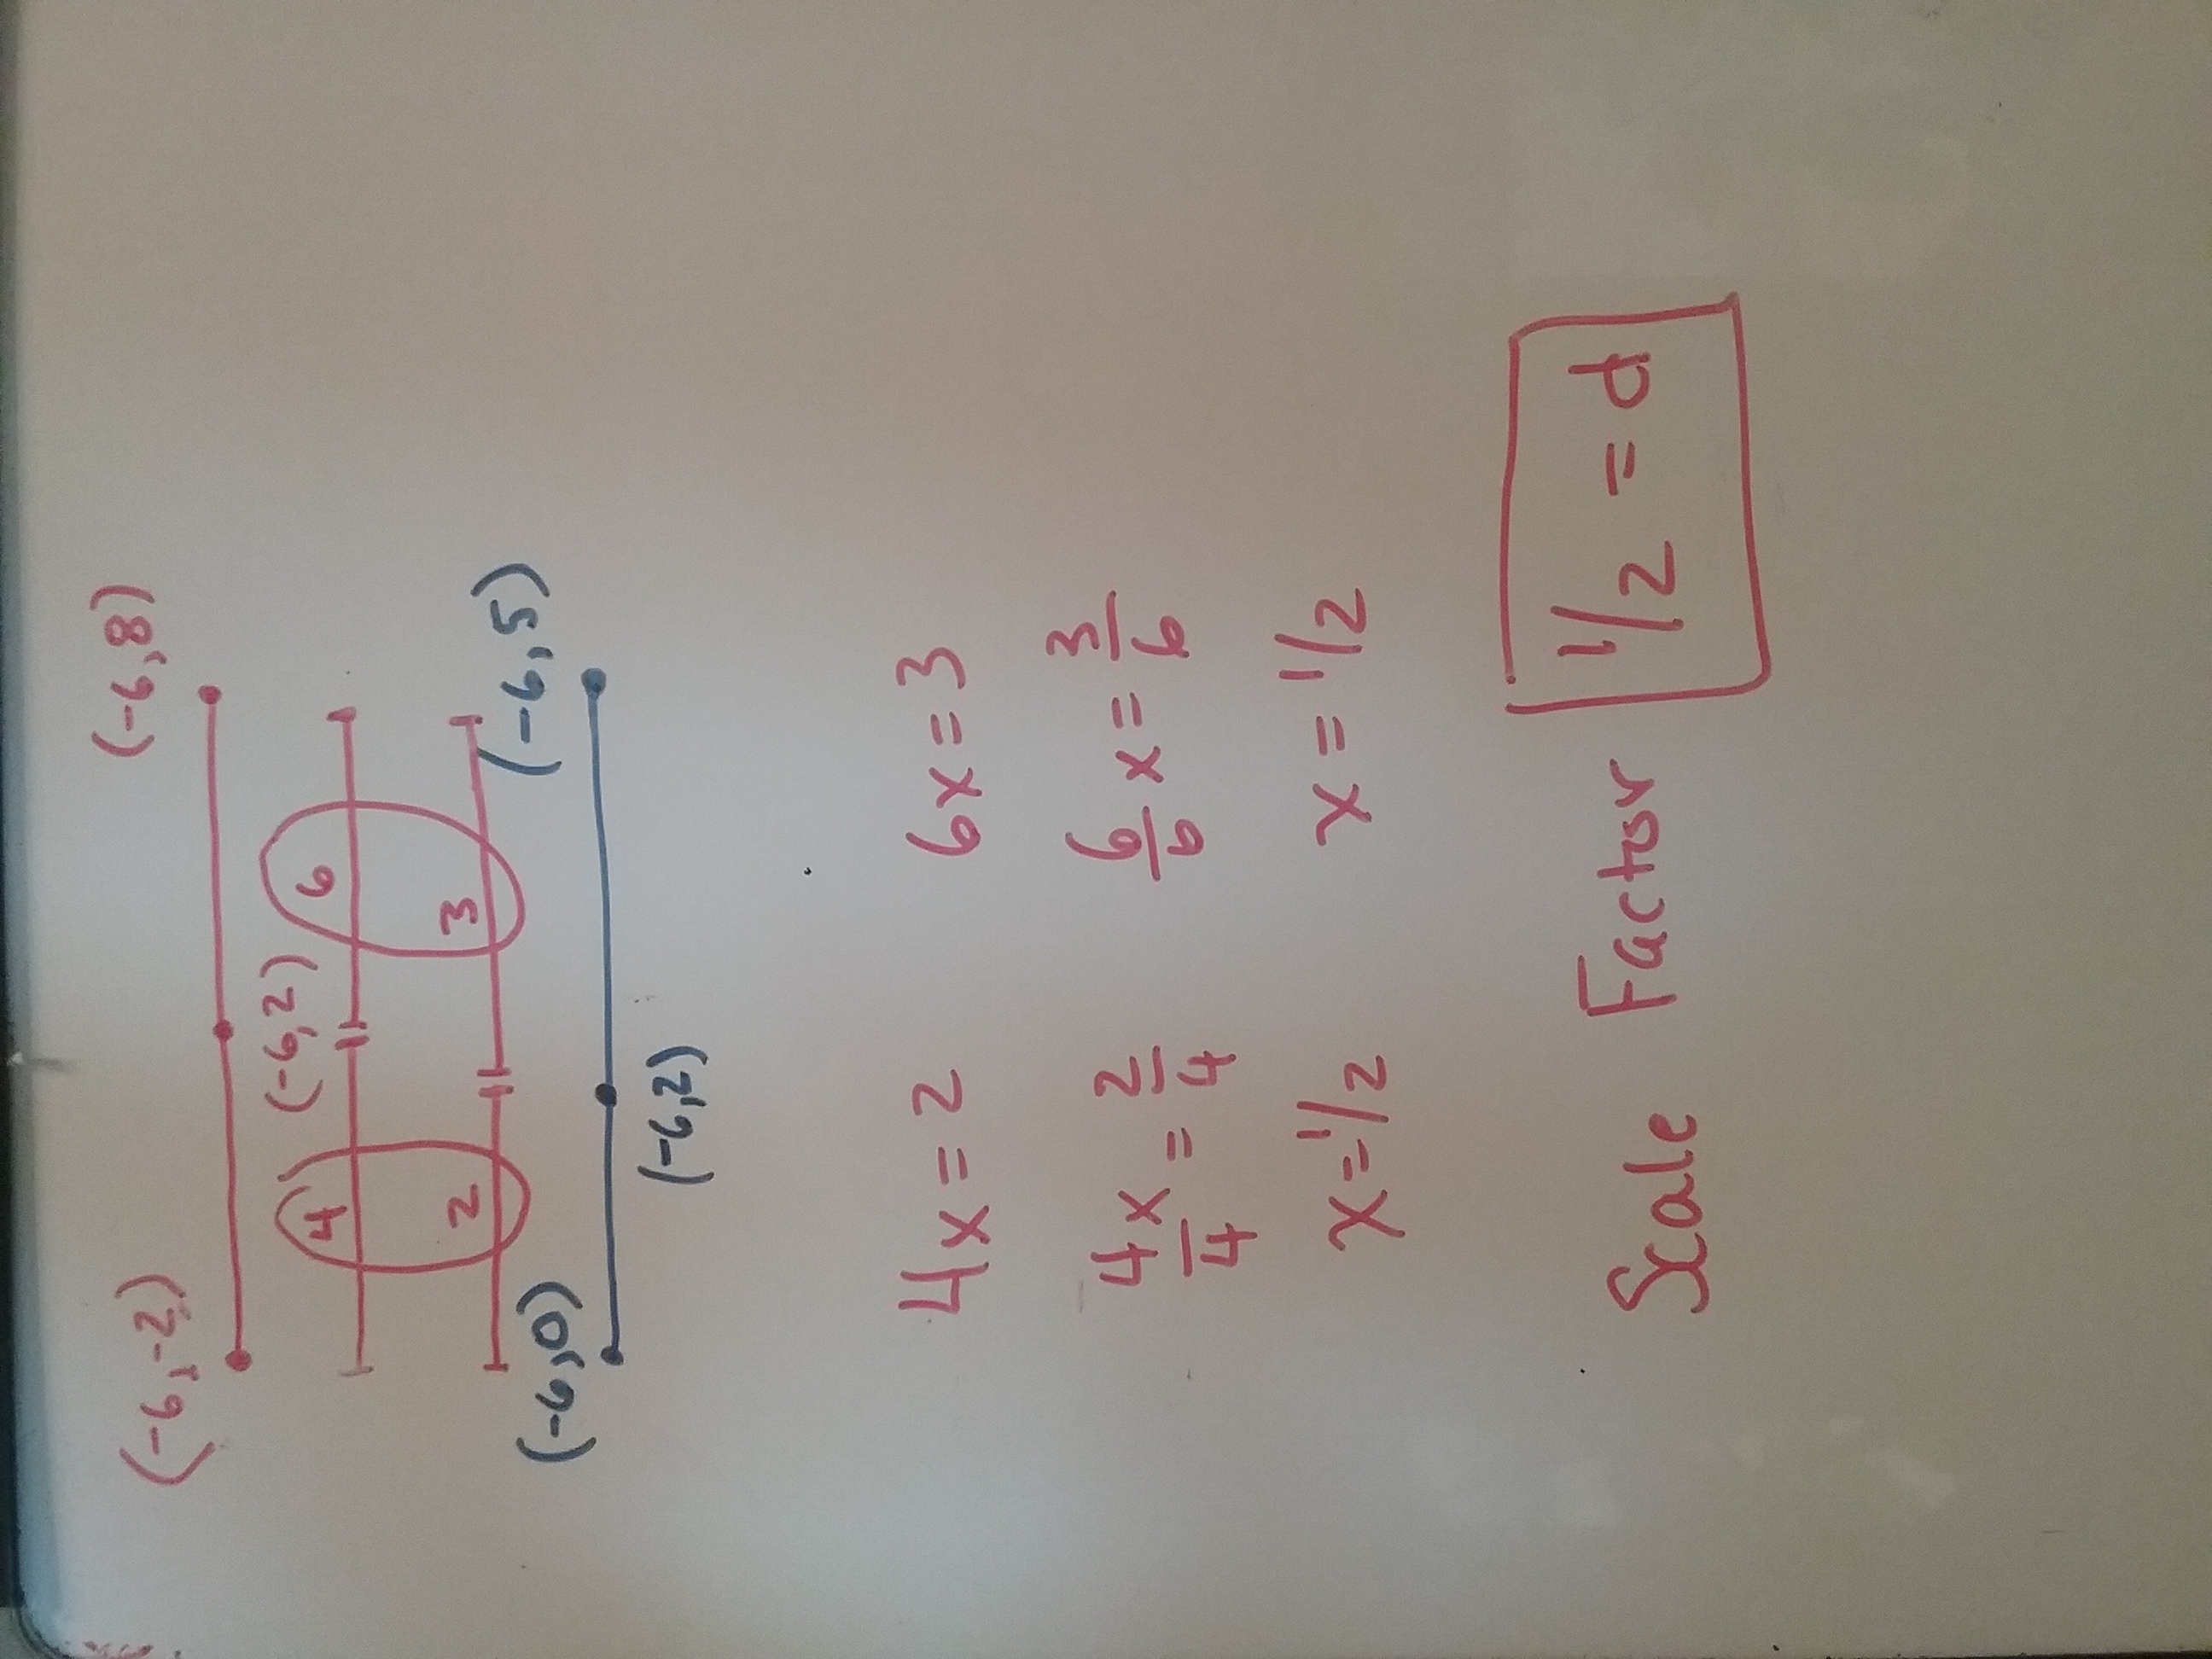 (-6,-2) (-6,8)
(-6,2)
4 6
2 3
(-6,0) (-6,5)
(-6,2)
4x = 2 6x = 3
4x/4 = 2/4 6/6 x = 3/6
x = 1/2 x = 1/2
Scale Factor 1/2 = d